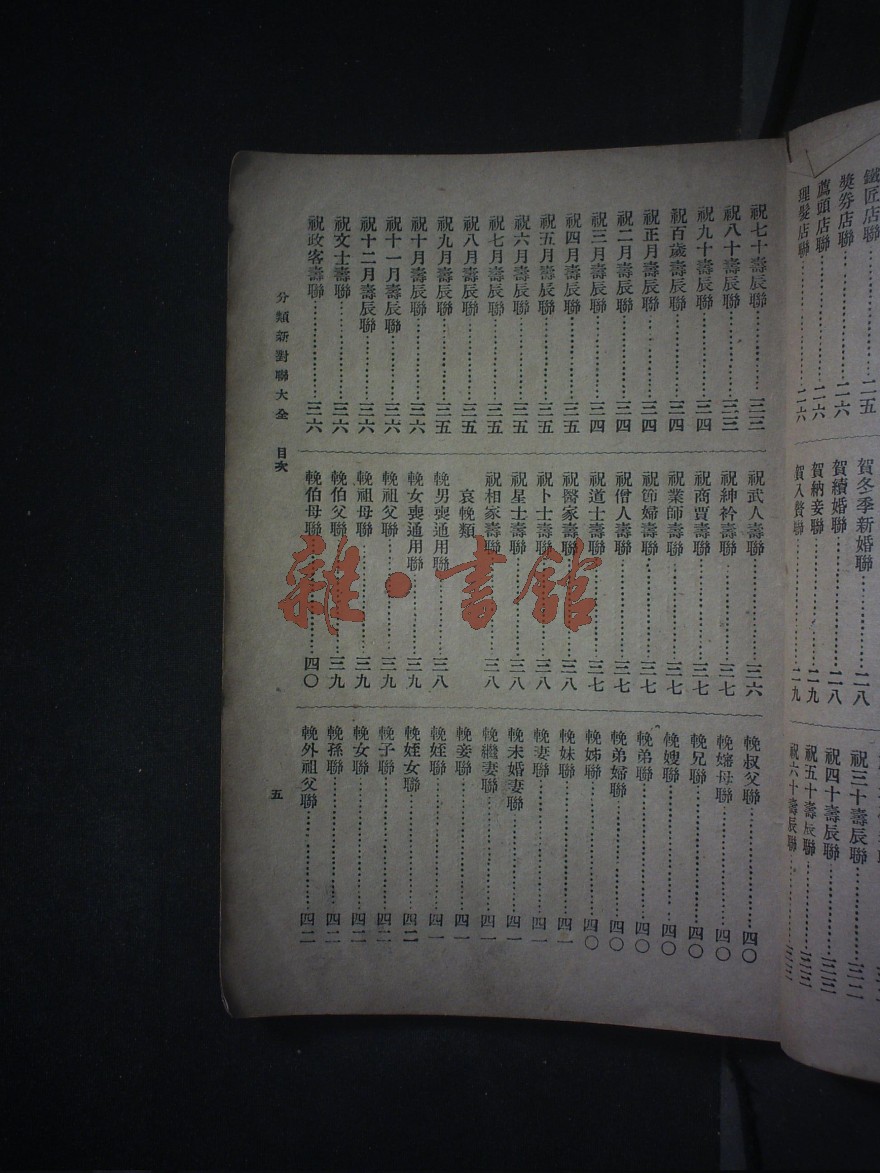 鐵匠店聯…………二五
獎券店聯…………二六
薦頭店聯…………二六
理髮店聯…………二六
賀冬季新婚聯…………二八
賀續婚聯…………二八
賀納妾聯…………二九
賀入贅聯…………二九
祝三十壽辰聯…………三二
祝四十壽辰聯…………三三
祝五十壽辰聯…………三三
祝六十壽辰聯…………三三
祝七十壽辰聯…………三三
祝八十壽辰聯…………三三
祝九十壽辰聯…………三四
祝百歲壽辰聯…………三四
祝正月壽辰聯…………三四
祝二月壽辰聯…………三四
祝三月壽辰聯…………三四
祝四月壽辰聯…………三五
祝五月壽辰聯…………三五
祝六月壽辰聯…………三五
祝七月壽辰聯…………三五
祝八月壽辰聯…………三五
祝九月壽辰聯…………三五
祝十月壽辰聯…………三六
祝十一月壽辰聯…………三六
祝十二月壽辰聯…………三六
祝文士壽聯…………三六
祝政客壽聯…………三六
祝武人壽聯…………三六
祝紳衿壽聯…………三七
祝商賈壽聯…………三七
祝業師壽聯…………三七
祝節婦壽聯…………三七
祝僧人壽聯…………三七
祝道士壽聯…………三七
祝醫家壽聯…………三八
祝卜士壽聯…………三八
祝星士壽聯…………三八
祝相家壽聯…………三八
哀輓類
輓男喪通用聯…………三八
輓女喪通用聯…………三九
輓祖父聯…………三九
輓祖母聯…………三九
輓伯父聯…………三九
輓伯母聯…………四〇
輓叔父聯…………四〇
輓嬸母聯…………四〇
輓兄聯…………四〇
輓嫂聯…………四〇
輓弟聯…………四〇
輓弟婦聯…………四〇
輓姊聯…………四〇
輓妹聯…………四一
輓妻聯…………四一
輓未婚妻聯…………四一
輓繼妻聯…………四一
輓妾聯…………四一
輓姪聯…………四一
輓姪女聯…………四二
輓子聯…………四二
輓女聯…………四二
輓孫聯…………四二
輓外祖父聯…………四二
分類新對聯大全 目次
五
雜·書館